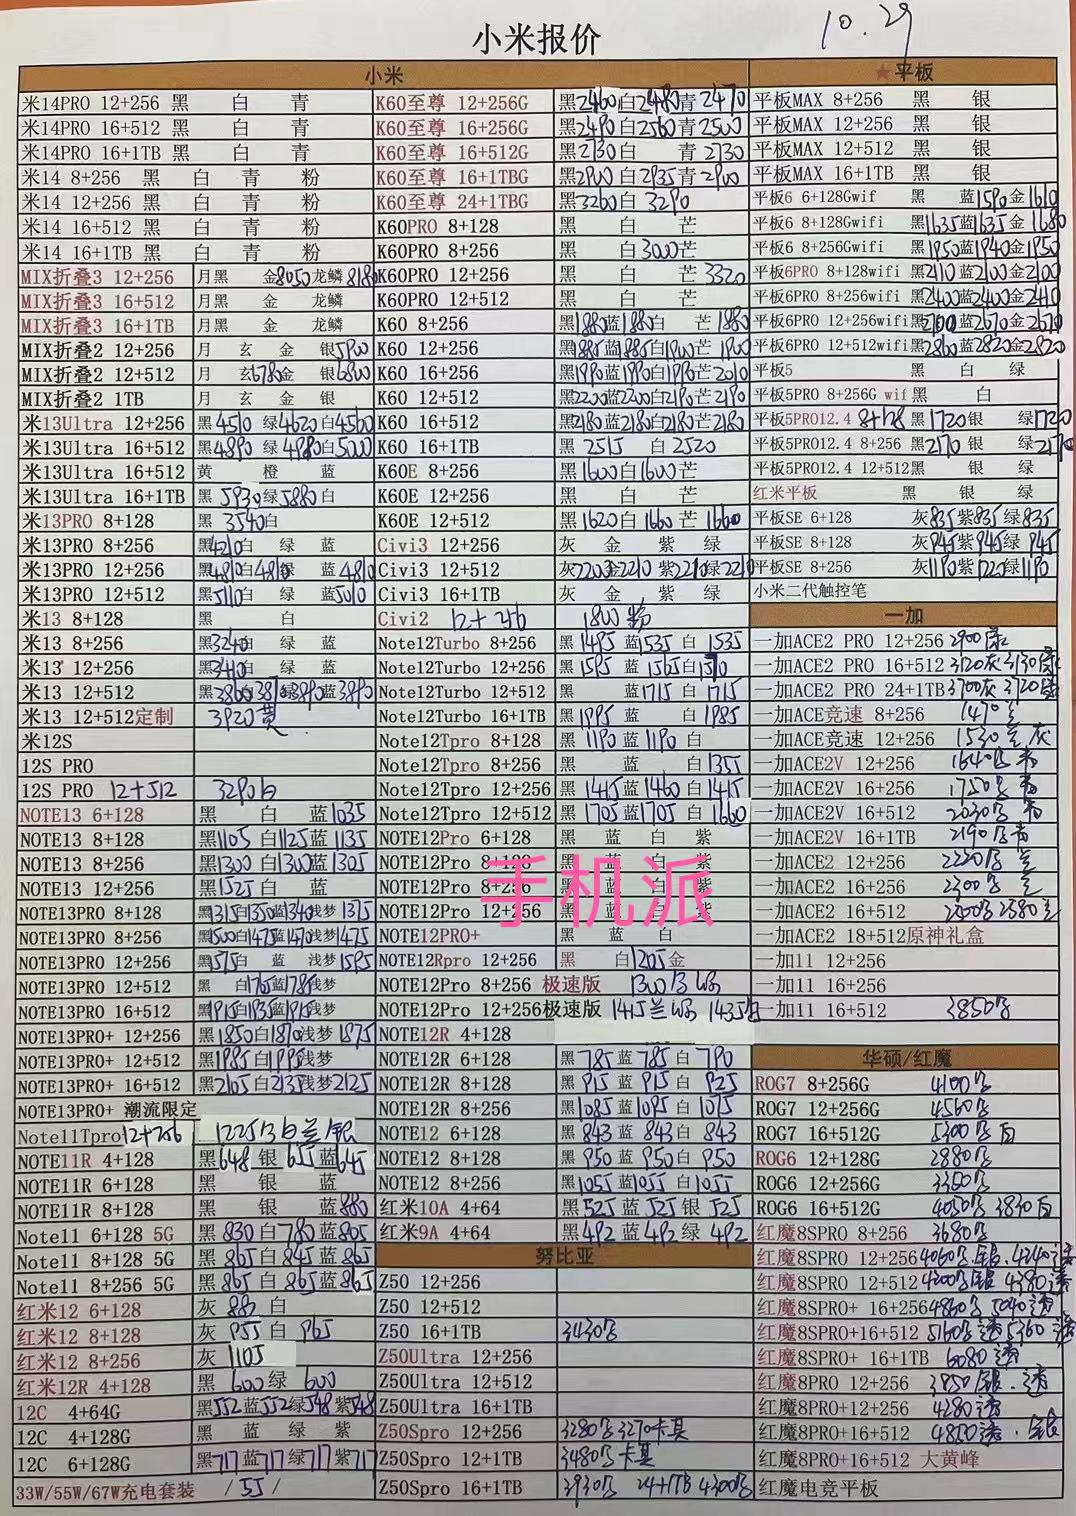 小米报价
10.29
小米
米14PRO 12+256 黑 白 青
米14PRO 16+512 黑 白 青
米14PRO 16+1TB 黑 白 青
米14 8+256 黑 白 青 粉
米14 12+256 黑 白 青 粉
米14 16+512 黑 白 青 粉
米14 16+1TB 黑 白 青 粉
MIX折叠3 12+256 月黑 金8050龙鳞8180
MIX折叠3 16+512 月黑 金 龙鳞
MIX折叠3 16+1TB 月黑 金 龙鳞
MIX折叠2 12+256 月 玄 金 银5900
MIX折叠2 12+512 月 玄6780金 银6800
MIX折叠2 1TB 月 玄 金 银
米13Ultra 12+256 黑4510 绿4620白4560
米13Ultra 16+512 黑4890 绿4980白5000
米13Ultra 16+512 黄 橙 蓝
米13Ultra 16+1TB 黑5930绿5880白
米13PRO 8+128 黑 3540白
米13PRO 8+256 黑4210白 绿 蓝
米13PRO 12+256 黑4810白4810绿 蓝4810
米13PRO 12+512 黑5110白 绿 蓝5010
米13 8+128 黑 白
米13 8+256 黑3240白 绿 蓝
米13 12+256 黑3410白 绿 蓝
米13 12+512 黑3860白3870绿3890蓝3890
米13 12+512定制 3920黄
米12S
12S PRO
12S PRO 12+512 3290白
NOTE13 6+128 黑 白 蓝1035
NOTE13 8+128 黑1105白1125蓝1135
NOTE13 8+256 黑1300白1300蓝1305
NOTE13 12+256 黑1525白 蓝
NOTE13PRO 8+128 黑1315白1350蓝1340浅梦1375
NOTE13PRO 8+256 黑1500白1475蓝1470浅梦1475
NOTE13PRO 12+256 黑1575白 蓝 浅梦1595
NOTE13PRO 12+512 黑 白1765蓝1785浅梦
NOTE13PRO 16+512 黑1915白1935蓝1915浅梦
NOTE13PRO+ 12+256 黑1850白1870浅梦1875
NOTE13PRO+ 12+512 黑1985白1995浅梦
NOTE13PRO+ 16+512 黑2105白2135浅梦2125
NOTE13PRO+ 潮流限定
Note11Tpro12+256 1225
NOTE11R 4+128 黑648 银 655蓝645
NOTE11R 6+128 黑 银 蓝
NOTE11R 8+128 黑 银 蓝880
Note11 6+128 5G 黑 830 白780蓝805
Note11 8+128 5G 黑 865 白 845 蓝865
Note11 8+256 5G 黑 865 白 865蓝865
红米12 6+128 灰 883 白
红米12 8+128 灰 955 白 965
红米12 8+256 灰 1105
红米12R 4+128 黑 600绿 600
12C 4+64G 黑552蓝552绿548紫548
12C 4+128G 黑 蓝 绿 紫
12C 6+128G 黑717蓝717绿717紫717
33W/55W/67W充电套装 /55/
K60至尊 12+256G 黑2460白2480青2470
K60至尊 16+256G 黑2490白2560青2500
K60至尊 16+512G 黑2730白 青2730
K60至尊 16+1TBG 黑2900白2935青2900
K60至尊 24+1TBG 黑3260白 3290
K60PRO 8+128 黑 白 芒
K60PRO 8+256 黑 白3000芒
K60PRO 12+256 黑 白 芒3320
K60PRO 12+512 黑 白 芒
K60 8+256 黑1880蓝1880白 芒1880
K60 12+256 黑1885蓝1885白1900芒1900
K60 16+256 黑1990蓝1990白1990芒2010
K60 12+512 黑2200蓝2200白2190芒2190
K60 16+512 黑2180蓝2180白2180芒2180
K60 16+1TB 黑 2515 白 2520
K60E 8+256 黑1600白1600芒
K60E 12+256 黑 白 芒
K60E 12+512 黑1620白 1660芒 1660
Civi3 12+256 灰 金 紫 绿
Civi3 12+512 灰2203金2210紫2210绿2210
Civi3 16+1TB 灰 金 紫 绿
Civi2 12+256 1800粉
Note12Turbo 8+256 黑1495蓝1535白 1535
Note12Turbo 12+256 黑1595蓝1565白1570
Note12Turbo 12+512 黑 蓝1715白 1715
Note12Turbo 16+1TB 黑1995蓝 白 1985
Note12Tpro 8+128 黑 1190蓝 1190白
Note12Tpro 8+256 黑 蓝 白1355
Note12Tpro 12+256 黑1415蓝1460白1415
Note12Tpro 12+512 黑1705蓝1705白1660
NOTE12Pro 6+128 黑 蓝 白 紫
NOTE12Pro 8+128 黑 蓝 白 紫
NOTE12Pro 8+256 黑 蓝 白 紫
NOTE12Pro 12+256 黑 蓝 白 紫
NOTE12PRO+ 黑 蓝 白
NOTE12Rpro 12+256 黑 白1205金
NOTE12Pro 8+256 极速版 1300
NOTE12Pro 12+256极速版 1415兰 1435白
NOTE12R 4+128
NOTE12R 6+128 黑785蓝785白790
NOTE12R 8+128 黑915蓝915白925
NOTE12R 8+256 黑1085蓝1095白1075
NOTE12 6+128 黑843蓝843白843
NOTE12 8+128 黑950蓝950白950
NOTE12 8+256 黑1055蓝1055白1055
红米10A 4+64 黑525蓝525银525
红米9A 4+64 黑492蓝492绿492
努比亚
Z50 12+256
Z50 12+512
Z50 16+1TB 3430
Z50Ultra 12+256
Z50Ultra 12+512
Z50Ultra 16+1TB
Z50Spro 12+256 3280 3270卡其
Z50Spro 12+1TB 3480 卡其
Z50Spro 16+1TB 3930 24+1TB 4300
★平板
平板MAX 8+256 黑 银
平板MAX 12+256 黑 银
平板MAX 12+512 黑 银
平板MAX 16+1TB 黑 银
平板6 6+128Gwif 黑 蓝1590金1610
平板6 8+128Gwifi 黑1635蓝1635金1680
平板6 8+256Gwifi 黑1950蓝1940金1950
平板6PRO 8+128wifi 黑2110蓝2100金2100
平板6PRO 8+256wifi 黑2400蓝2400金2410
平板6PRO 12+256wifi黑2700蓝2670金2670
平板6PRO 12+512wifi 黑2860蓝2820金2820
平板5 黑 白 绿
平板5PRO 8+256G wif 黑 白
平板5PRO12.4 8+128 黑1720银 绿1720
平板5PRO12.4 8+256 黑2170银 绿2170
平板5PRO12.4 12+512黑 银 绿
红米平板 黑 银 绿
平板SE 6+128 灰835紫835绿835
平板SE 8+128 灰945紫945绿945
平板SE 8+256 灰1190紫1220绿1190
小米二代触控笔
一加
一加ACE2 PRO 12+256 2900
一加ACE2 PRO 16+512 3120灰 3130
一加ACE2 PRO 24+1TB3700灰 3720
一加ACE竞速 8+256 1470
一加ACE竞速 12+256 1530 灰
一加ACE2V 12+256 1640
一加ACE2V 16+256 1750
一加ACE2V 16+512 2030
一加ACE2V 16+1TB 2190
一加ACE2 12+256 2220
一加ACE2 16+256 2300
一加ACE2 16+512 2550 2580
一加ACE2 18+512原神礼盒
一加11 12+256
一加11 16+256
一加11 16+512 3850
华硕/红魔
ROG7 8+256G 4100
ROG7 12+256G 4560
ROG7 16+512G 5300 白
ROG6 12+128G 2880
ROG6 12+256G 3350
ROG6 16+512G 4050 3830白
红魔8SPRO 8+256 3680
红魔8SPRO 12+256 4060 银.4240透
红魔8SPRO 12+512 4200 银 4380透
红魔8SPRO+ 16+256 4860 5040透
红魔8SPRO+16+512 5160 透5360
红魔8SPRO+ 16+1TB 6080透
红魔8PRO 12+256 3950银.透
红魔8PRO+12+256 4280透
红魔8PRO+16+512 4850透.银
红魔8PRO+16+512 大黄蜂
红魔电竞平板
手机派